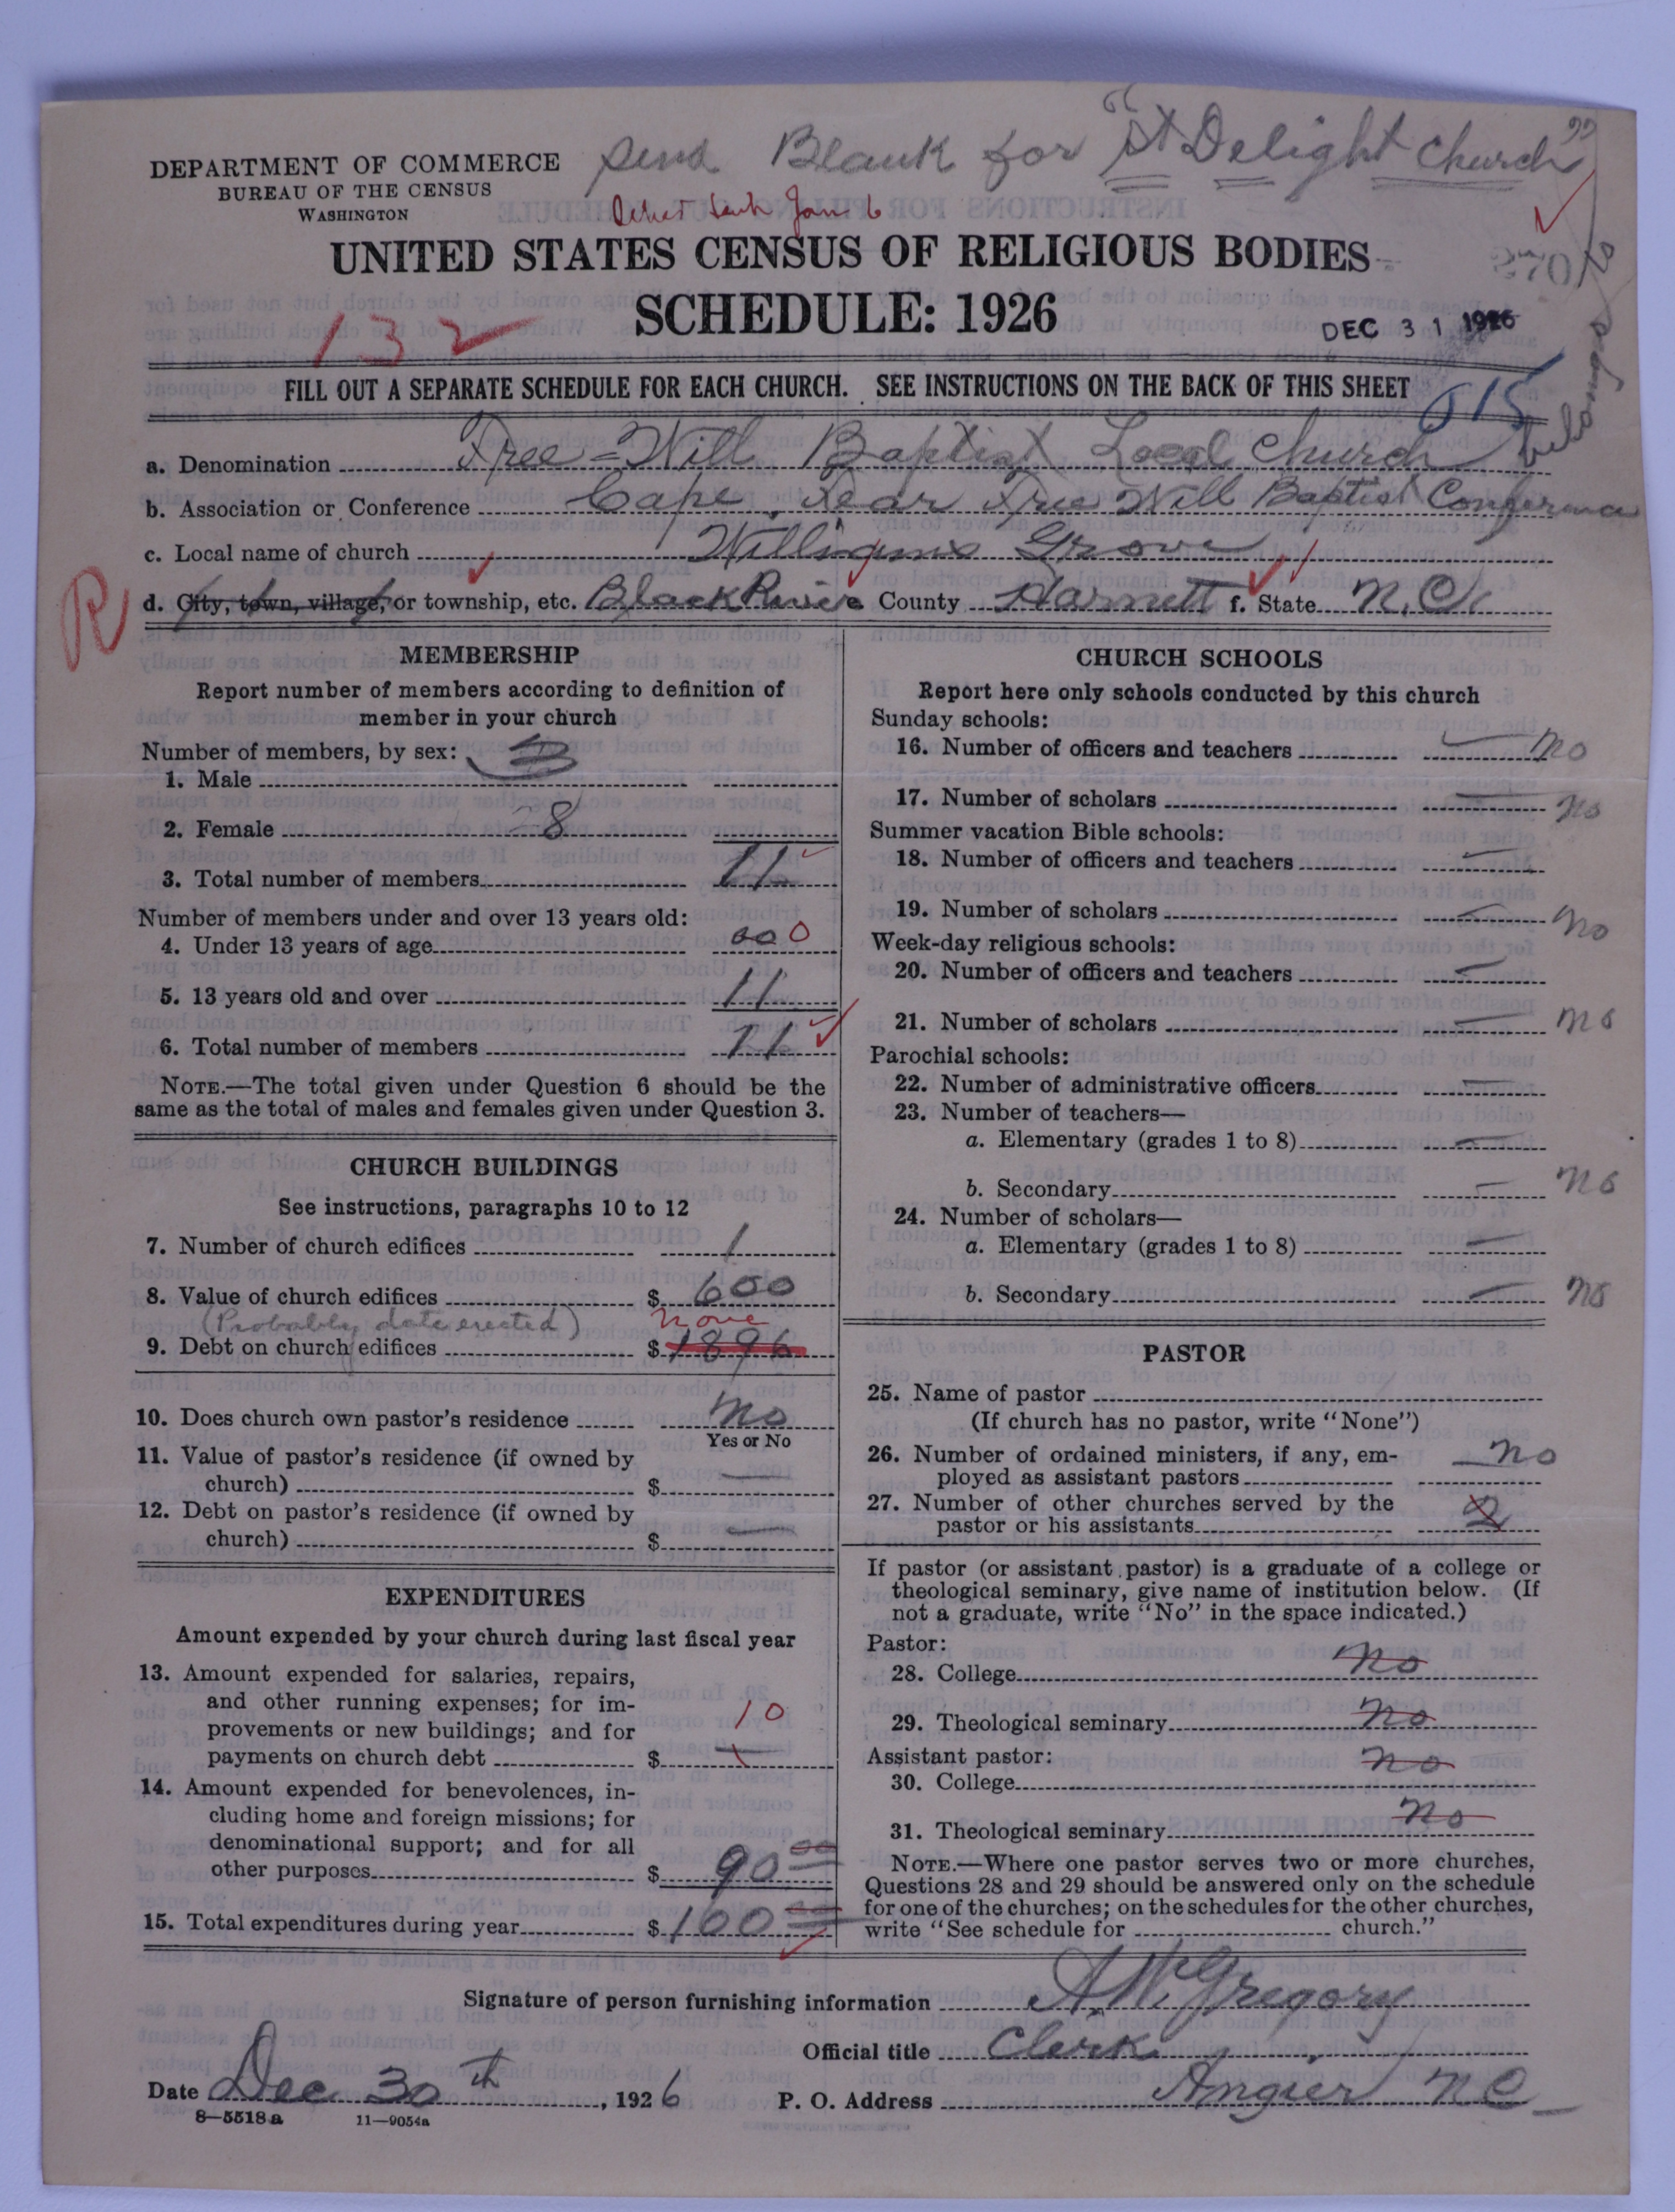 DEPARTMENT OF COMMERCE
BUREAU OF THE CENSUS
WASHINGTON
Send Blank for "St Delight Church"
belongs to
Jan 6
UNITED STATES CENSUS OF RELIGIOUS BODIES
SCHEDULE: 1926
270
132
DEC 31 1926
FILL OUT A SEPARATE SCHEDULE FOR EACH CHURCH. SEE INSTRUCTIONS ON THE BACK OF THIS SHEET
615
a. Denomination Free=Will Baptist Local Church
b. Association or Conference Cape Fear Free Will Baptist Conference
c. Local name of church Williams Grove
R
d. City, town, village, or township, etc. Black River County Harnett f. State N.C.
MEMBERSHIP
Report number of members according to definition of
member in your church
Number of members, by sex: 3
1. Male
2. Female 8
3. Total number of members 11
Number of members under and over 13 years old:
4. Under 13 years of age 000
5. 13 years old and over 11
6. Total number of members 11
NOTE.—The total given under Question 6 should be the
same as the total of males and females given under Question 3.
CHURCH BUILDINGS
See instructions, paragraphs 10 to 12
7. Number of church edifices 1
8. Value of church edifices $ 600
(Probably date erected) none
9. Debt on church edifices $ 1896
10. Does church own pastor's residence No
Yes or No
11. Value of pastor's residence (if owned by
church) $ —
12. Debt on pastor's residence (if owned by
church) $ —
EXPENDITURES
Amount expended by your church during last fiscal year
13. Amount expended for salaries, repairs,
and other running expenses; for im-
provements or new buildings; and for 10
payments on church debt $ —
14. Amount expended for benevolences, in-
cluding home and foreign missions; for
denominational support; and for all
other purposes $ 90 00
15. Total expenditures during year $ 100 00
CHURCH SCHOOLS
Report here only schools conducted by this church
Sunday schools:
16. Number of officers and teachers — no
17. Number of scholars — no
Summer vacation Bible schools:
18. Number of officers and teachers —
19. Number of scholars — no
Week-day religious schools:
20. Number of officers and teachers —
21. Number of scholars — no
Parochial schools:
22. Number of administrative officers —
23. Number of teachers—
a. Elementary (grades 1 to 8) —
b. Secondary — no
24. Number of scholars—
a. Elementary (grades 1 to 8) —
b. Secondary — no
PASTOR
25. Name of pastor
(If church has no pastor, write "None")
26. Number of ordained ministers, if any, em- no
ployed as assistant pastors
27. Number of other churches served by the
pastor or his assistants 2
If pastor (or assistant pastor) is a graduate of a college or
theological seminary, give name of institution below. (If
not a graduate, write "No" in the space indicated.)
Pastor:
28. College no
29. Theological seminary no
Assistant pastor:
30. College no
31. Theological seminary no
NOTE.—Where one pastor serves two or more churches,
Questions 28 and 29 should be answered only on the schedule
for one of the churches; on the schedules for the other churches,
write "See schedule for church."
Signature of person furnishing information A.W. Gregory
Official title Clerk
Date Dec 30th, 1926 P. O. Address Angier N C
8—5518a 11—9054a